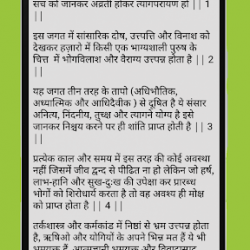 सच को जानकर अव्रती होकर त्यागपरायण हो || 1
||
इस जगत में सांसारिक दोष, उत्पत्ति और विनाश को
देखकर हज़ारो में किसी एक भाग्यशाली पुरुष के
चित्त में भोगविलाश और वैराग्य उत्त्पन्न होता है || 2
||
यह जगत तीन तरह के तापो (अधिभौतिक,
अध्यात्मिक और आधिदैवीक ) से दुषित है ये संसार
अनित्य, निंदनीय, तुच्छ और त्यागने योग्य है इसे
जानकर निश्चय करने पर ही शांति प्राप्त होती है || 3
||
प्रत्येक काल और समय में इस तरह की कोई अवस्था
नहीं जिसमें जीव द्वन्द से पीढित ना हो लेकिन जो हर्ष,
लाभ-हानि और सुख-दुःख की उपेक्षा कर प्रारब्ध
भोगों को शिरोधार्य करता है तो वह अवश्य ही मोक्ष
को प्राप्त होता है || 4 ||
तर्कशास्त्र और कर्मकांड में निष्ठा से भ्रम उत्पन्न होता
है, ऋषिओ और योगियों के अपने भिन्न मत हैं ये भी